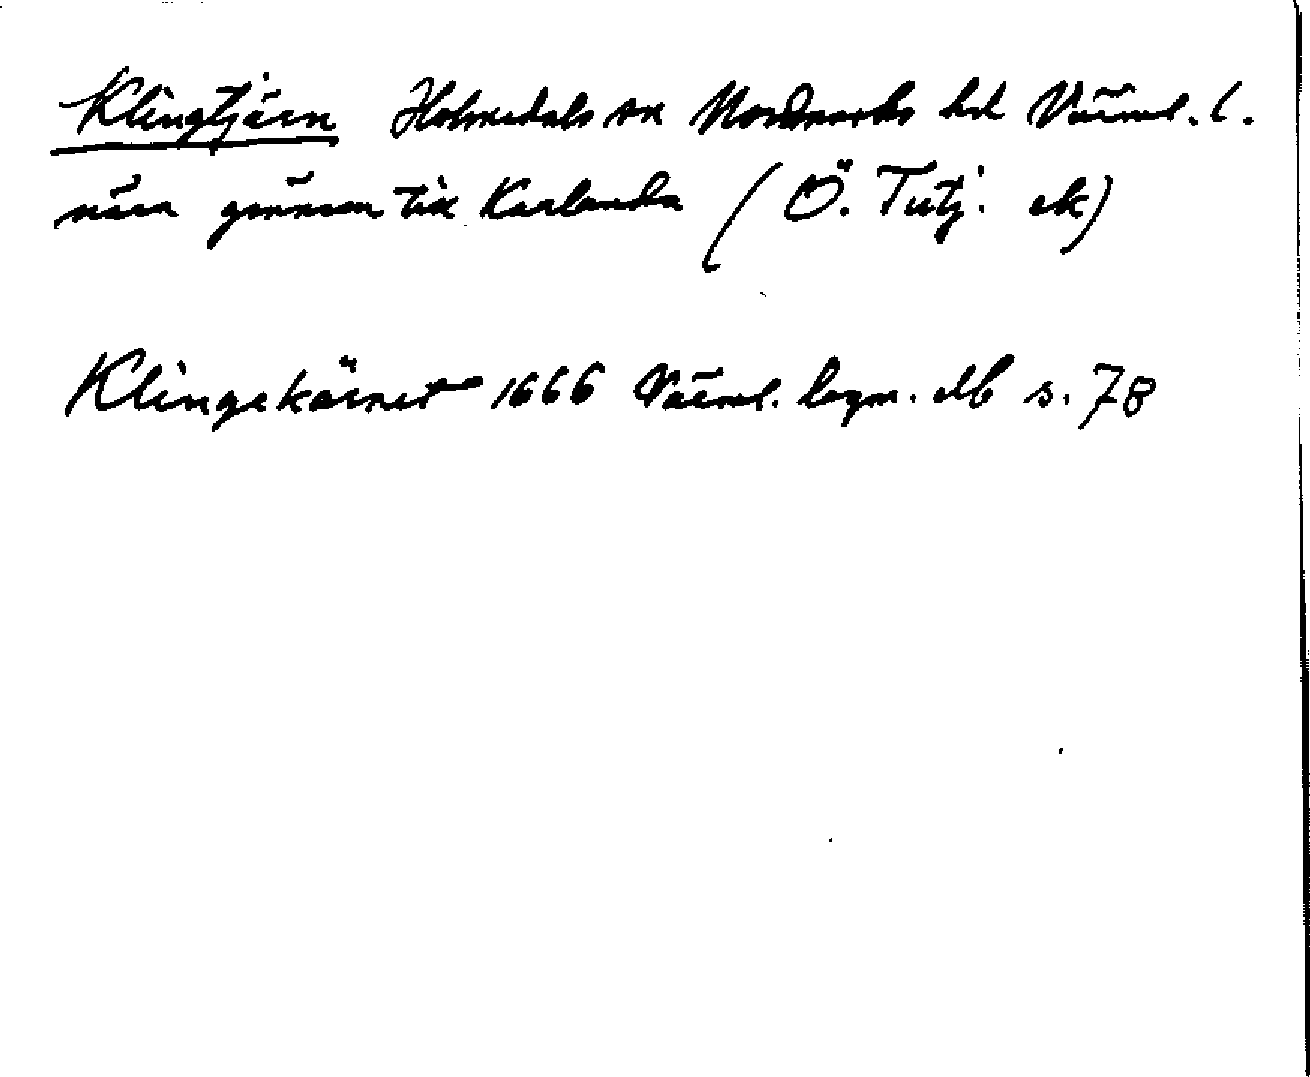 Klingtjärn Holmedals sn Nordmarks hd Värml. l.
nära gränsen till Karlanda (Ö. Tutj. ek)
Klingekärnet 1666 Värml. lagm. db s. 78